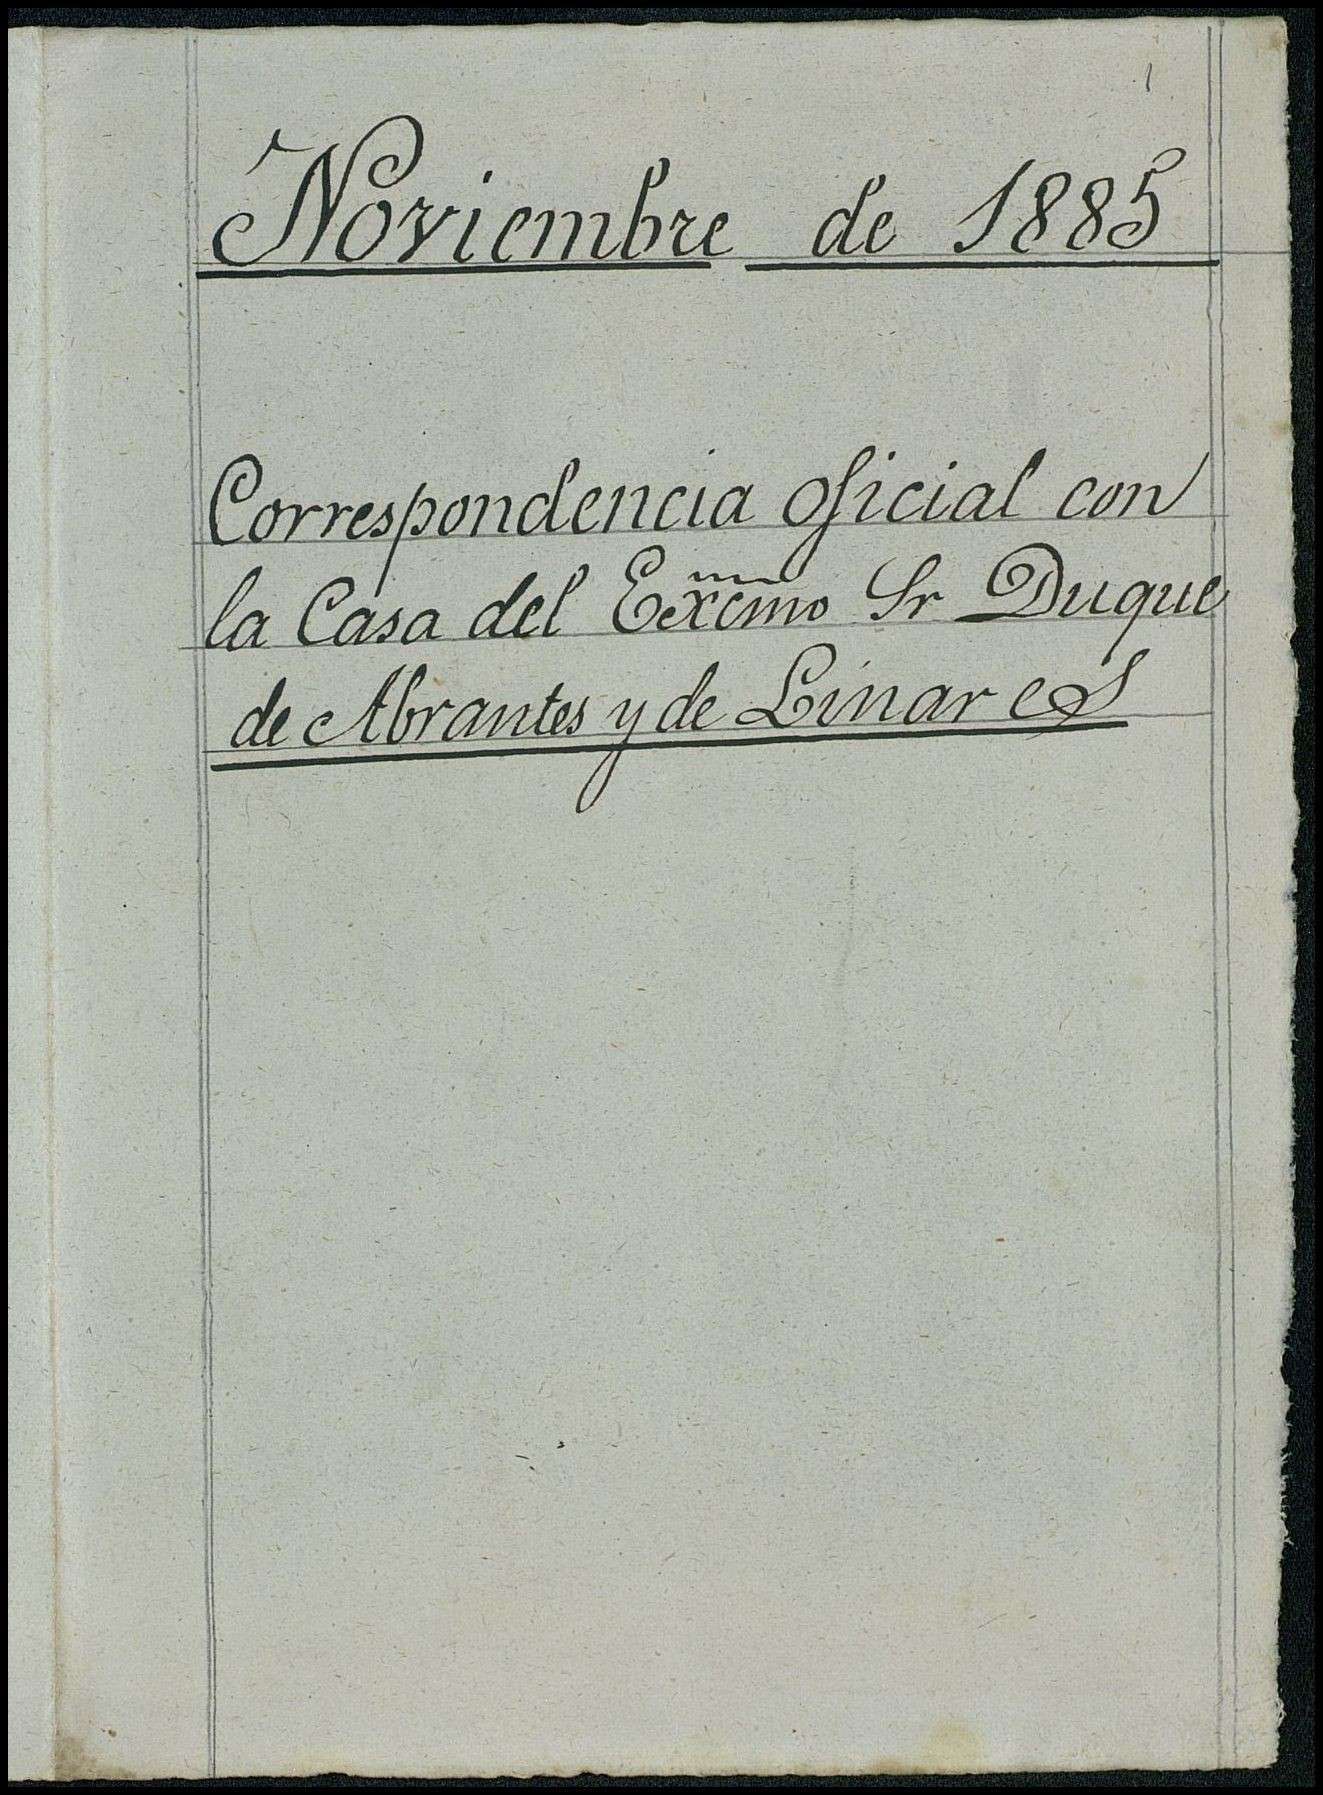 1
Noviembre de 1885
Correspondencia oficial con
la Casa del Excmo Sr Duque
de Abrantes y de Linares